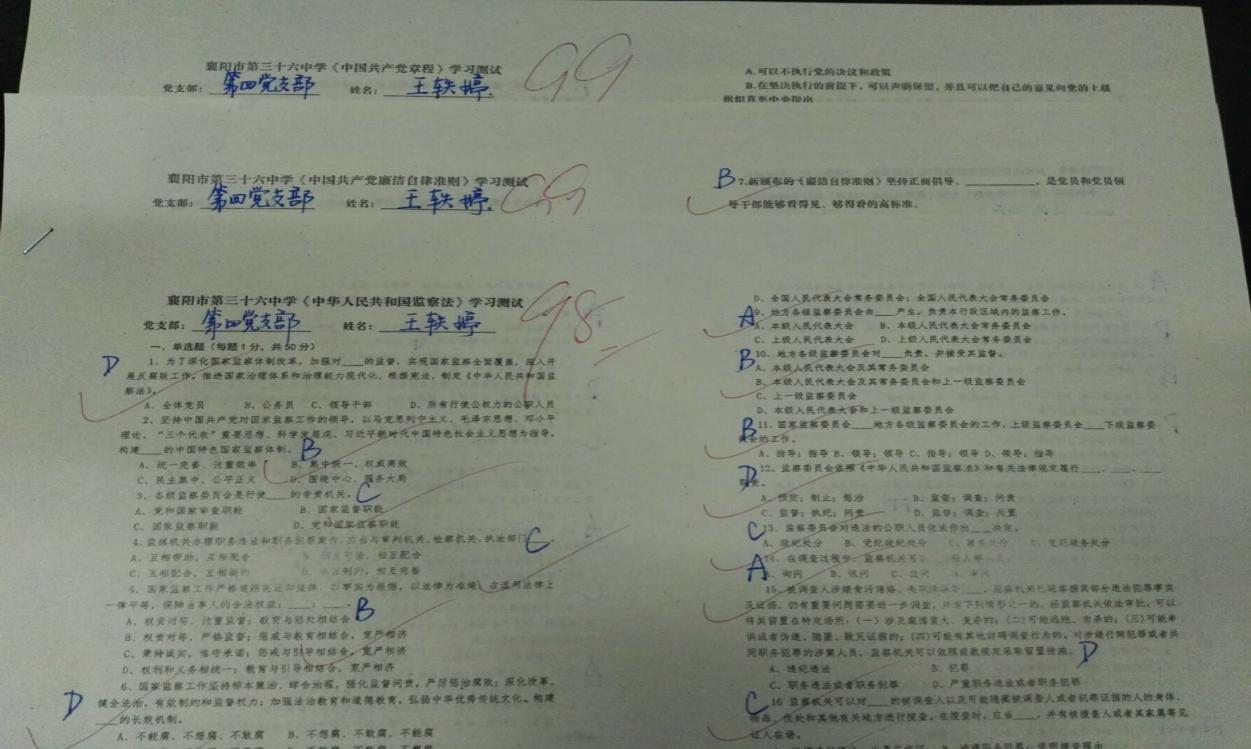 襄阳市第三十六中学《中国共产党章程》学习测试
党支部： 第四党支部 姓名： 王轶婷
99
A.可以不执行党的决议和政策
B.在坚决执行的前提下，可以声明保留，并且可以把自己的意见向党的上级
组织直至中央提出
襄阳市第三十六中学《中国共产党廉洁自律准则》学习测试
党支部： 第四党支部 姓名： 王轶婷
99
B 7.新颁布的《廉洁自律准则》坚持正面倡导、____________，是党员和党员领
导干部能够看得见、够得着的高标准。
襄阳市第三十六中学《中华人民共和国监察法》学习测试
党支部： 第四党支部 姓名： 王轶婷
98
一、单选题（每题1分，共50分）
D 1、为了深化国家监察体制改革，加强对____的监督，实现国家监察全面覆盖，深入开
展反腐败工作，推进国家治理体系和治理能力现代化，根据宪法，制定《中华人民共和国监
察法》。
A、全体党员 B、公务员 C、领导干部 D、所有行使公权力的公职人员
2、坚持中国共产党对国家监察工作的领导，以马克思列宁主义、毛泽东思想、邓小平
理论、“三个代表”重要思想、科学发展观、习近平新时代中国特色社会主义思想为指导，
构建____的中国特色国家监察体制。 B
A、统一完善、注重效率 B、集中统一、权威高效
C、民主集中、公平正义 D、围绕中心、服务大局
3、各级监察委员会是行使____的专责机关。 C
A、党和国家审查职能 B、国家监督职能
C、国家监察职能 D、党和国家监察职能
4、监察机关办理职务违法和职务犯罪案件，应当与审判机关、检察机关、执法部门 C
A、互相帮助，互相配合 相互配合
C、互相配合，互相制约 相互完善
5、国家监察工作严格遵照宪法和法律，以事实为根据，以法律为准绳；在适用法律上
一律平等，保障当事人的合法权益；____；____。 B
A、权责对等，注重监督；教育与惩处相结合
B、权责对等，严格监督；惩戒与教育相结合，宽严相济
C、秉持诚实，恪守承诺；惩戒与引导相结合，宽严相济
D、权利和义务相统一；教育与引导相结合，宽严相济
D 6、国家监察工作坚持标本兼治、综合治理，强化监督问责，严厉惩治腐败；深化改革、
健全法治，有效制约和监督权力；加强法治教育和道德教育，弘扬中华优秀传统文化，构建
____的长效机制。
A、不能腐、不想腐、不敢腐 B、不想腐、不敢腐、不能腐
D、全国人民代表大会常务委员会；全国人民代表大会常务委员会
A 9、地方各级监察委员会由____产生，负责本行政区域内的监察工作。
A、本级人民代表大会 B、本级人民代表大会常务委员会
C、上级人民代表大会 D、上级人民代表大会常务委员会
B 10、地方各级监察委员会对____负责，并接受其监督。
A、本级人民代表大会及其常务委员会
B、本级人民代表大会及其常务委员会和上一级监察委员会
C、上一级监察委员会
D、本级人民代表大会和上一级监察委员会
B 11、国家监察委员会____地方各级监察委员会的工作，上级监察委员会____下级监察委
员会的工作。
A、指导；指导 B、领导；领导 C、指导；领导 D、领导；指导
D 12、监察委员会依照《中华人民共和国监察法》和有关法律规定履行____、____、____
职责。
A、预防；制止；惩治 B、监督；调查；问责
C、监督；执纪；问责 D、监督；调查；处置
C 13、监察委员会对违法的公职人员依法作出____决定。
A、政纪处分 B、党纪政纪处分 C、政务处分
A 14、在调查过程中，监察机关可
A、询问 B、讯问 C、
15、被调查人涉嫌贪污贿赂、失职渎职等____，监察机关已经掌握其部分违法犯罪事实
及证据，仍有重要问题需要进一步调查，并有下列情形之一的，经监察机关依法审批，可以
将其留置在特定场所：(一) 涉及案情重大、复杂的；(二) 可能逃跑、自杀的；(三) 可能串
供或者伪造、隐匿、毁灭证据的；(四) 可能有其他妨碍调查行为的。对涉嫌行贿犯罪或者共
同职务犯罪的涉案人员，监察机关可以依照前款规定采取留置措施。 D
A、违纪违法 B、犯罪
C、职务违法或者职务犯罪 D、严重职务违法或者职务犯罪
C 16、监察机关可以对____的被调查人以及可能隐藏被调查人或者犯罪证据的人的身体、
物品、住处和其他有关地方进行搜查。在搜查时，应当____，并有被搜查人或者其家属等见
证人在场。